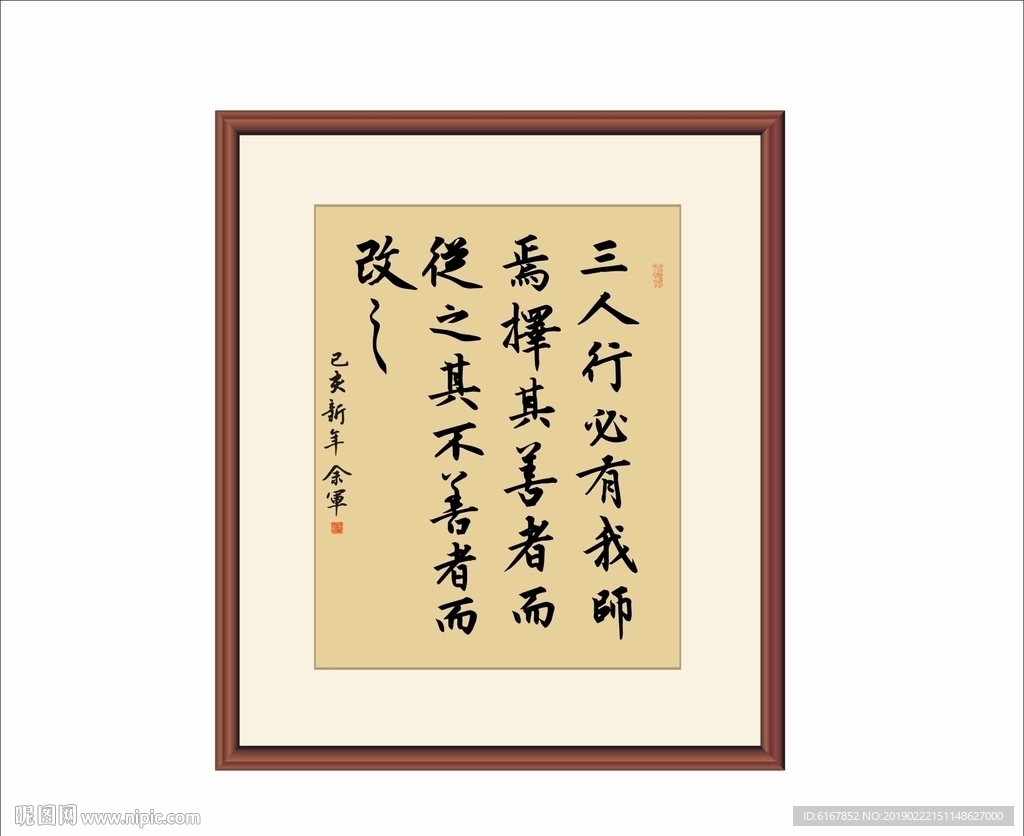 三人行必有我師
焉擇其善者而
從之其不善者而
改之
己亥新年 余軍
昵图网 www.nipic.com
ID:6167852 NO:20190222151148627000